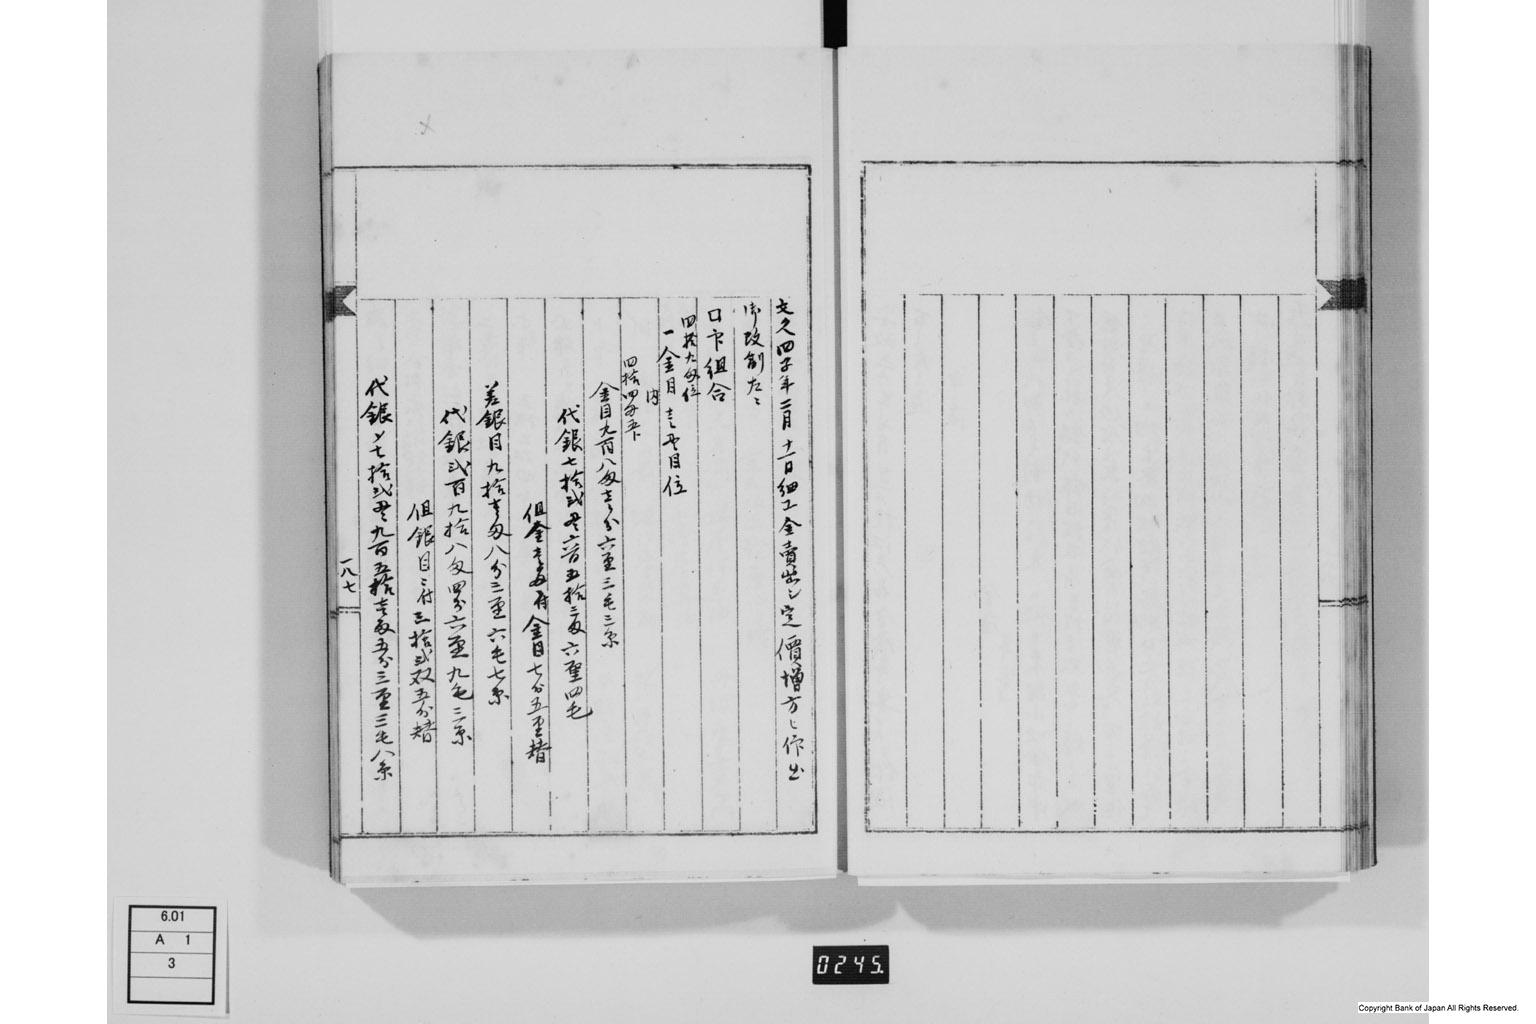 文久四子年二月十一日細工金賣出シ定價増方ニ作出
御改創左ニ
口市組合
四拾九匁位
一金目壱〆目位
内
四拾四匁五下
金目九百八匁壱分六厘三毛三糸
代銀七拾弐〆六百五拾三匁六厘四毛
但金壱匁ニ付金目七分五厘替
差銀目九拾壱匁八分三厘六毛七糸
代銀弐百九拾八匁四分六厘九毛三糸
但銀目ニ付三拾弐双五分替
代銀〆七拾弐〆九百五拾壱匁五分三厘三毛八糸
一八七
6.01
A 1
3
0245.
Copyright Bank of Japan All Rights Reserved.